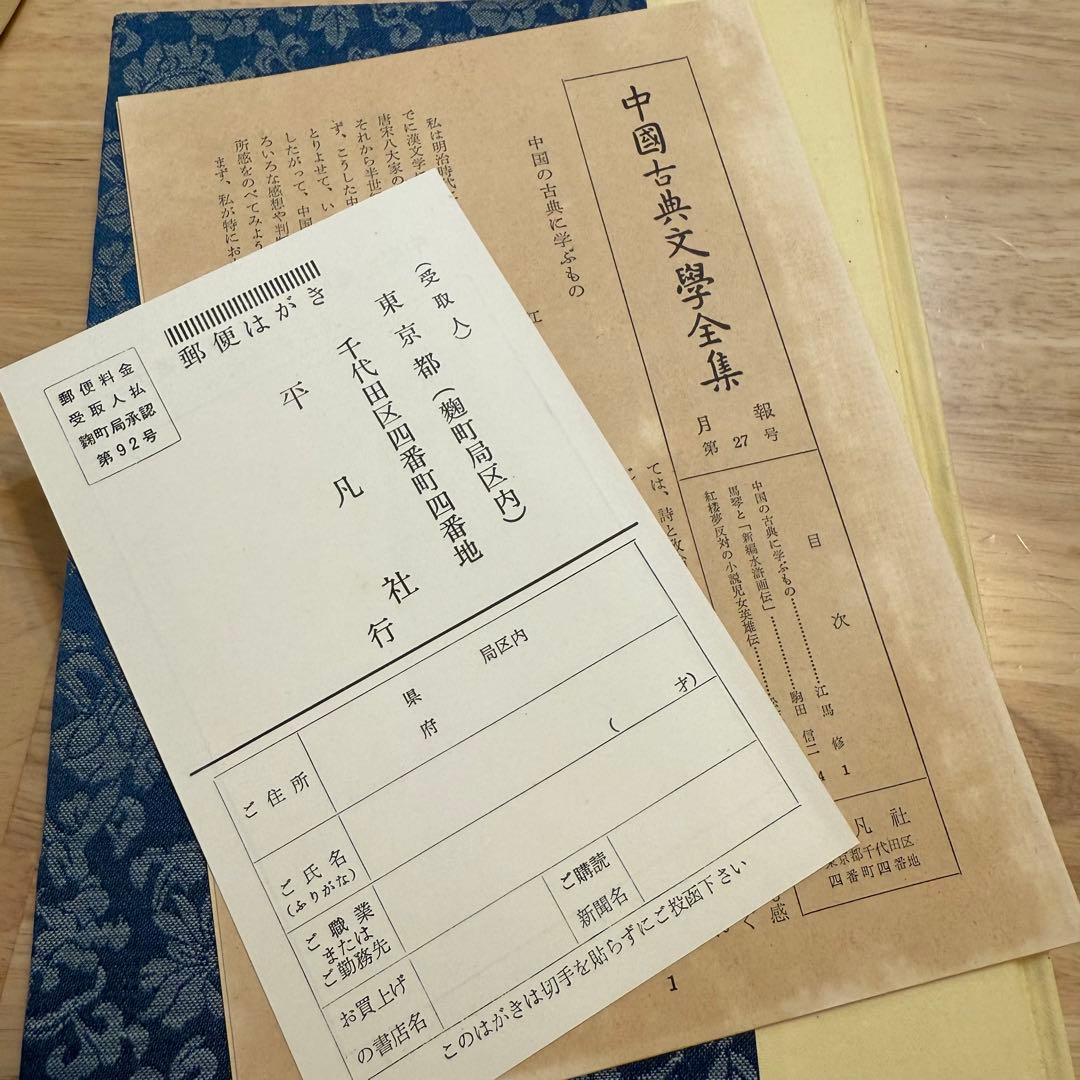 中國古典文學全集
月報
第27号
目次
中国の古典に学ぶもの……………江馬修 1
馬琴と「新編水滸画伝」……………駒田信二 4
紅楼夢反対の小説児女英雄伝…………
凡社
東京都千代田区
四番町四番地
中国の古典に学ぶもの
江
私は明治時代
でに漢文学
唐宋八大家の
それから半世
ず、こうした
とりよせて、い
したがって、中国
ろいろな感想や判
所感をのべてみよう
まず、私が特にお
ては、詩と
感
く
1
郵便はがき
郵便料金
受取人払
麹町局承認
第92号
(受取人)
東京都(麹町局区内)
千代田区四番町四番地
平凡社行
県
府
局区内
ご住所
(才)
ご氏名
(ふりがな)
ご職業
または
ご勤務先
ご購読
新聞名
お買上げ
の書店名
このはがきは切手を貼らずにご投函下さい